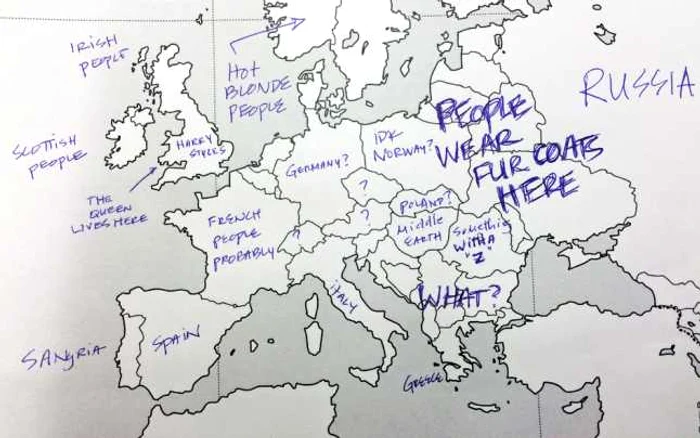 IRISH
PEOPLE
HOT
BLONDE
PEOPLE
RUSSIA
SCOTTISH
PEOPLE
HARRY
STYLES
THE
QUEEN
LIVES HERE
GERMANY?
IDK
NORWAY?
PEOPLE
WEAR
FUR COATS
HERE
?
?
?
POLAND?
Middle
EARTH
Something
WITH A
"Z"
FRENCH
PEOPLE
PROBABLY
WHAT?
ITALY
SPAIN
SANGRIA
GREECE